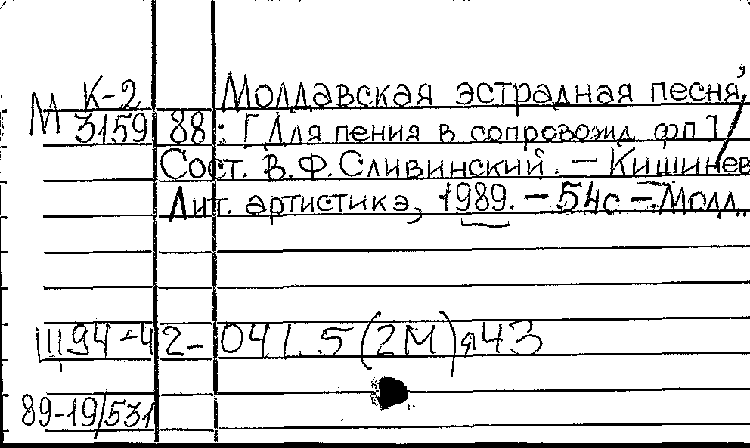 К-2 Молдавская эстрадная песня,
М 3159 88: [Для пения в сопровожд. фп] /
Сост. В.Ф. Сливинский. — Кишинев
Лит. артистика, 1989. — 54с — Молд.
Щ 94-42-041.5(2М)я43
89-19/531